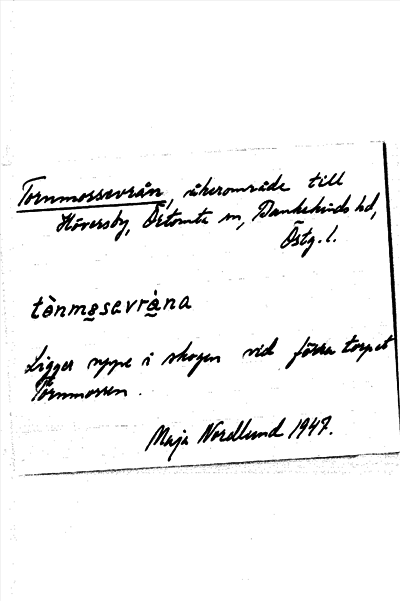 Tornmossevrån, åkerområde till
Höversby, Östomta sn, Bankekinds hd,
Östg. l.
tònmo̲sevrà̲na
Ligger uppe i skogen vid förra torpet
Törnmossen.
Maja Nordlund 1947.